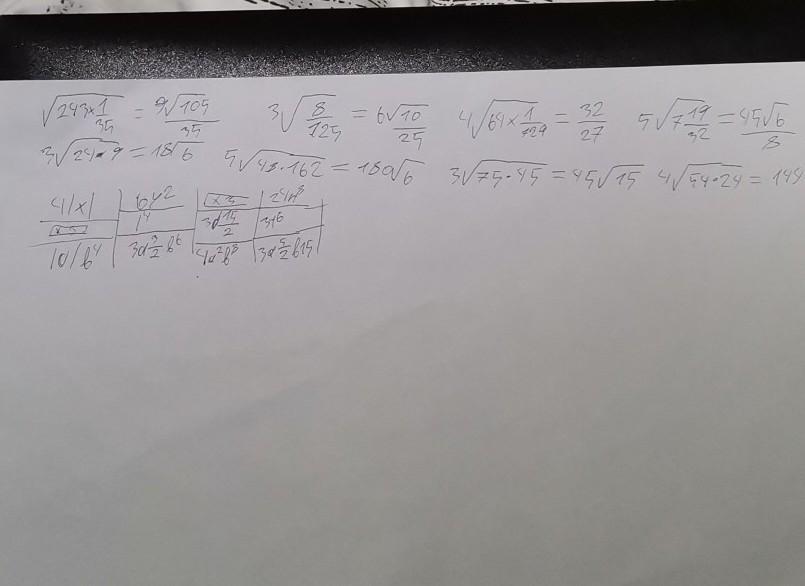 √243×1/35 = 9√105/35 3√8/125 = 6√10/25 4√64×1/729 = 32/27 5√7 19/32 = 45√6/8
3√24·9 = 18√6 5√48·162 = 180√6 3√75·45 = 45√15 4√54·24 = 144
4|x| 6y² x3 24n⁸
1⁴ 3a 15/2 3t⁶
|a|b⁴ 3a 3/2 b⁶ 4a²b⁸ 3a 5/2 b15